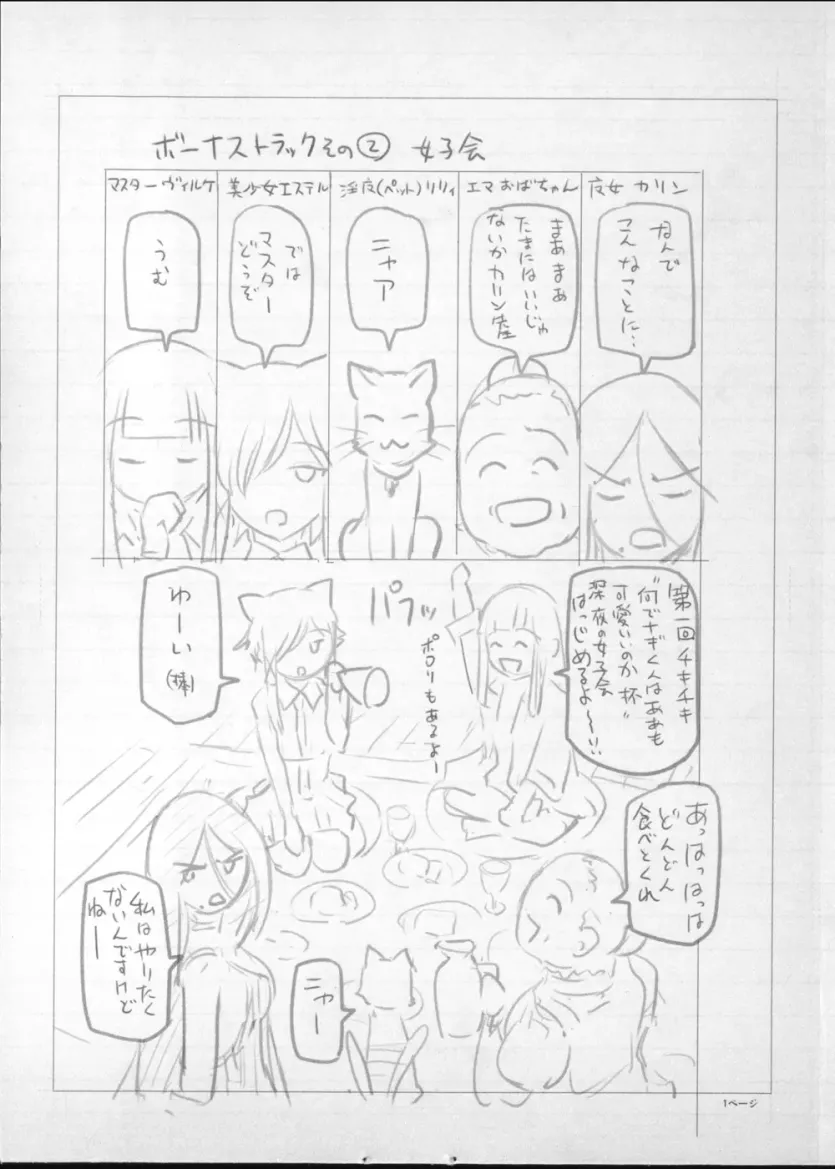 ボーナストラックその② 女子会
魔女 カリン
なんで
こんなことに…
エマおばちゃん
まあまあ
たまにはいいじゃ
ないかカリン達
淫魔(ペット)リリィ
ニャア
美少女エステル
では
マスター
どうぞ
マスターヴィルケ
うむ
第一回チキチキ
"何でナギくんはああも
可愛いいのか杯"
深夜の女子会
はっじめるよ〜!!
パフッ
ポロリもあるよー
わーい(棒)
あっはっはっは
どんどん
食べとくれ
私はやりたく
ないんですけど
ねー
ニャー
1ページ